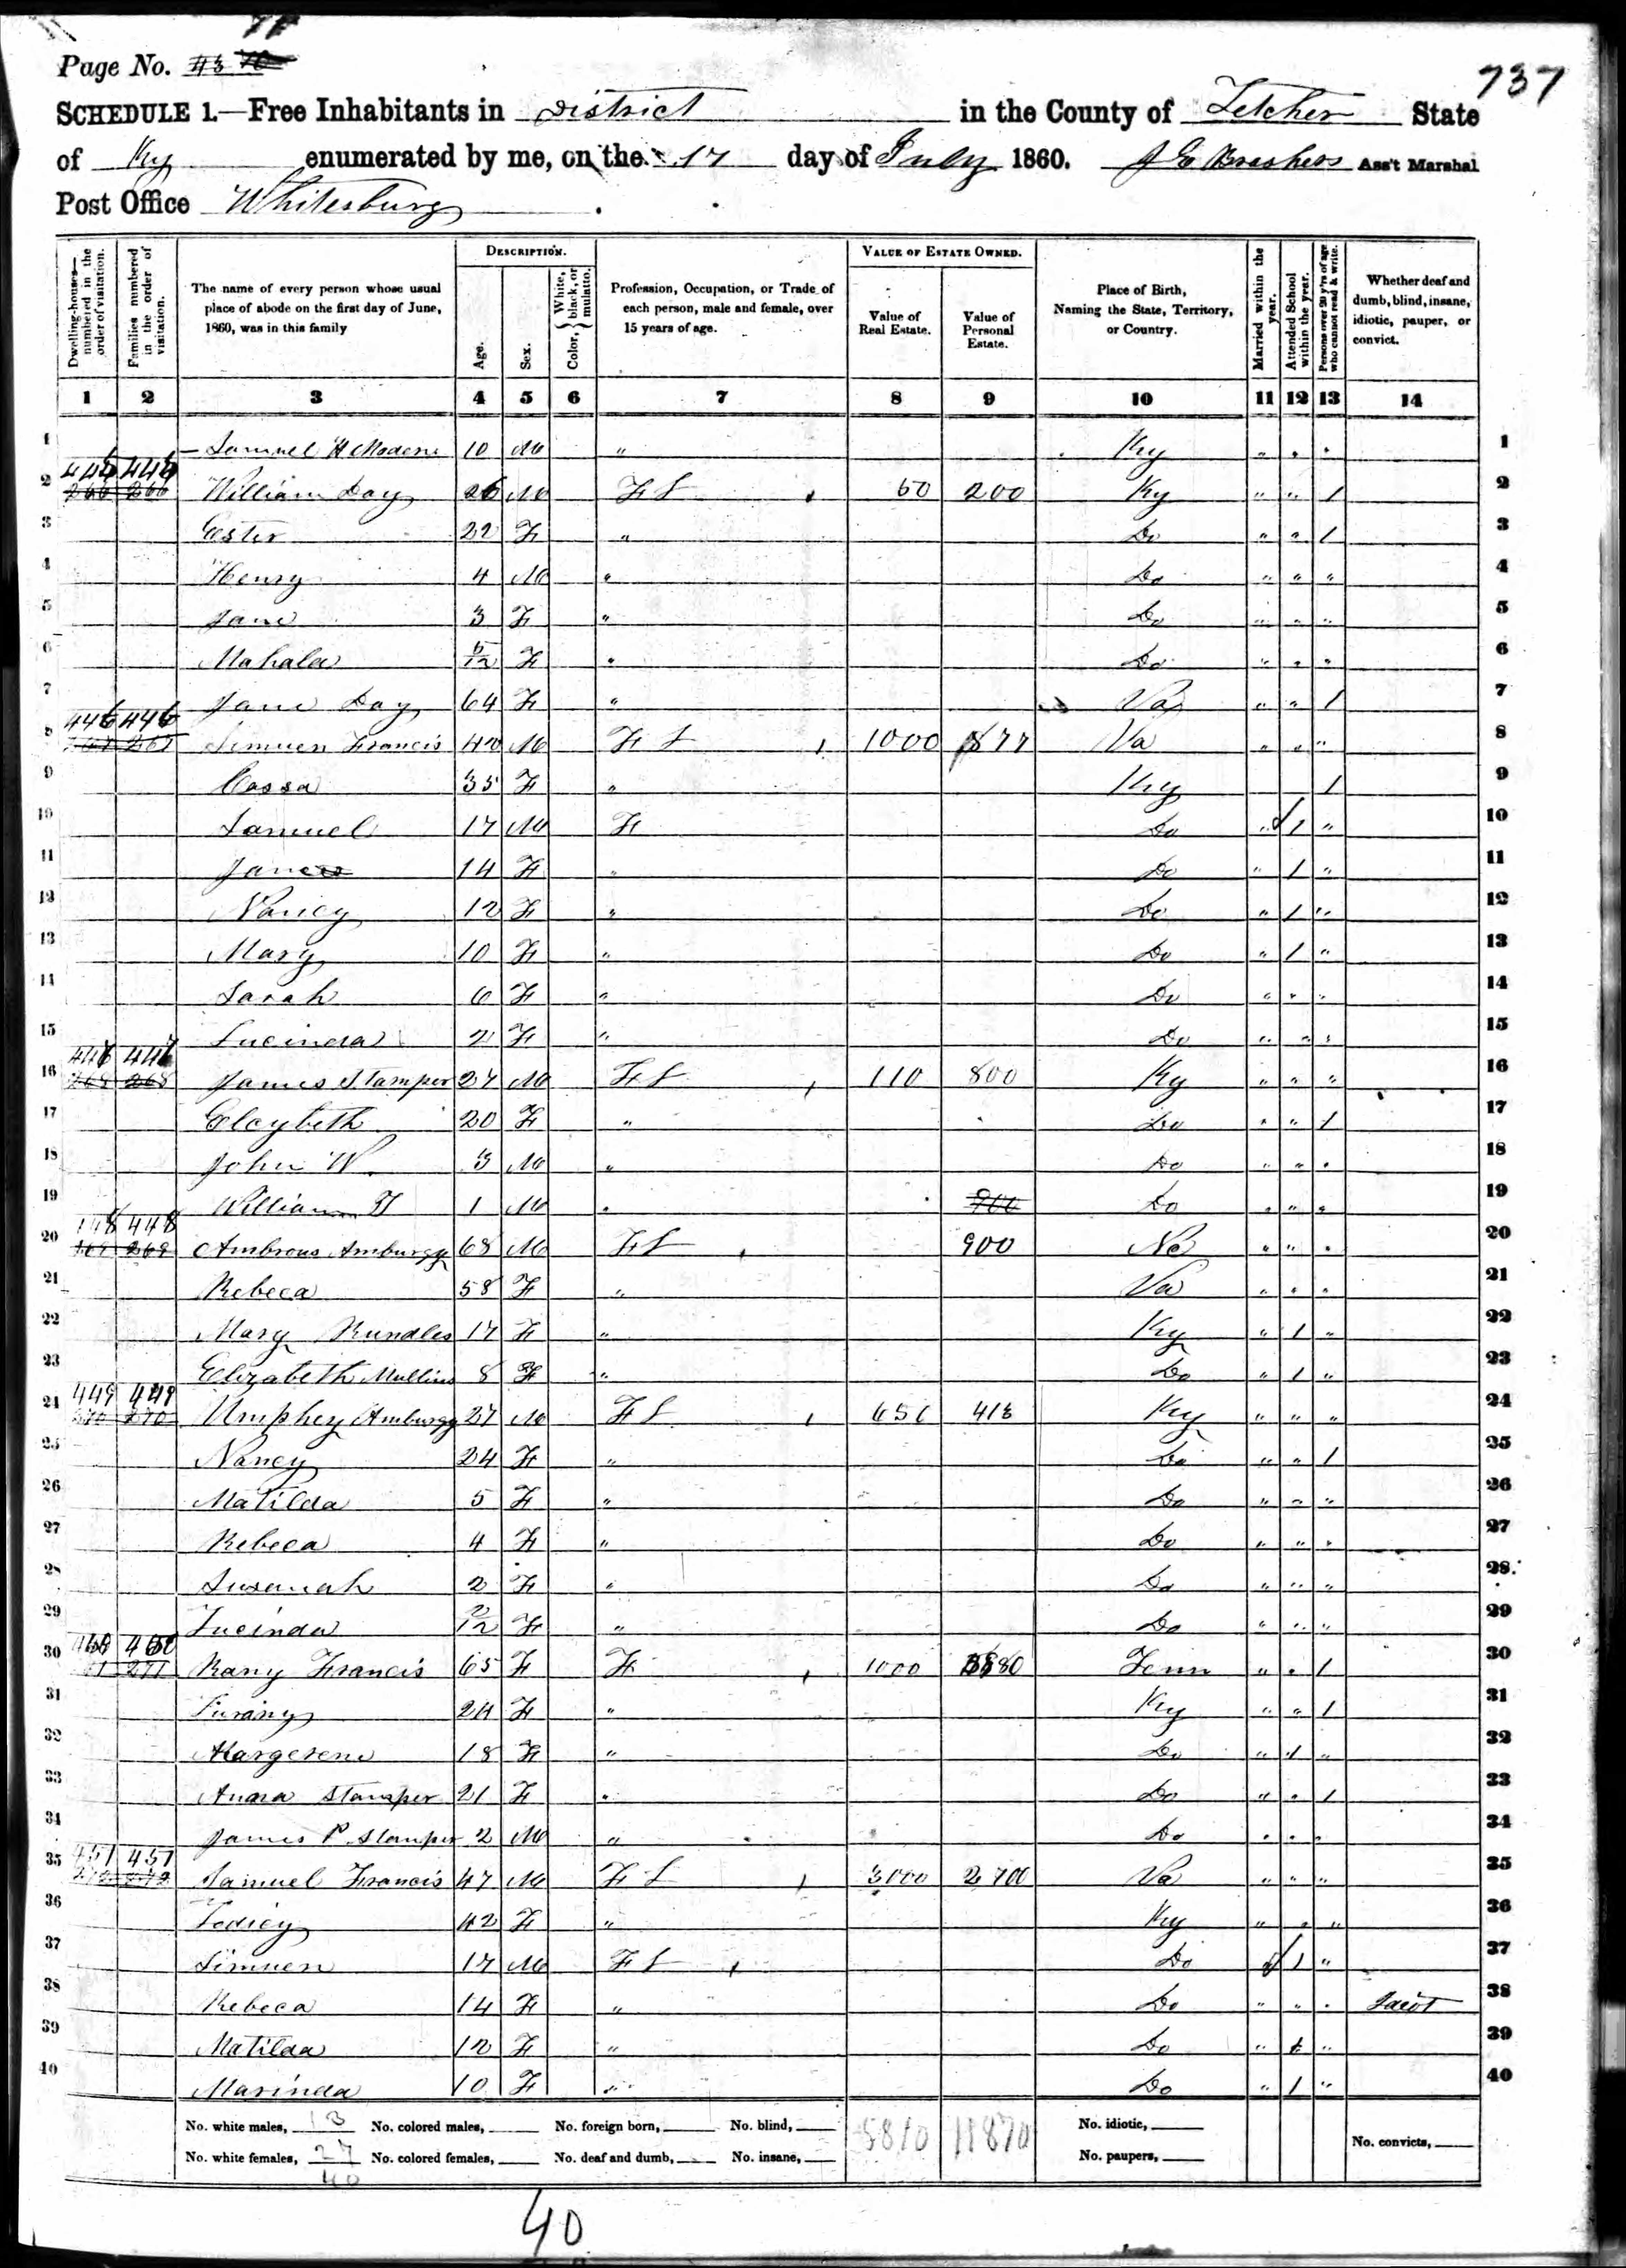 Page No. 43
737
SCHEDULE 1.—Free Inhabitants in District in the County of Letcher State
of Ky enumerated by me, on the 17 day of July 1860. Ass't Marshal
Post Office Whitesburg
Dwelling-houses—numbered in the order of visitation. Families numbered in the order of visitation. The name of every person whose usual place of abode on the first day of June, 1860, was in this family DESCRIPTION. Age. Sex. Color, { White, black, or mulatto. Profession, Occupation, or Trade of each person, male and female, over 15 years of age. VALUE OF ESTATE OWNED. Value of Real Estate. Value of Personal Estate. Place of Birth, Naming the State, Territory, or Country. Married within the year. Attended School within the year. Persons over 20 y'rs of age who cannot read & write. Whether deaf and dumb, blind, insane, idiotic, pauper, or convict.
1 2 3 4 5 6 7 8 9 10 11 12 13 14
1 — Samuel H 10 M " Ky " " " 1
2 William Day 26 M F L 50 200 Ky " " / 2
3 Ester 22 F " Do " " / 3
4 Henry 4 M " Do " " " 4
5 Jane 3 F " Do " " " 5
6 Mahala /12 F " Do " " " 6
7 Jane Day 64 F " Va " " / 7
8 446 446 Simuen Francis 40 M F L 1000 Va " " " 8
9 Cassa 35 F " Ky / 9
10 Samuel 17 M F Do " / " 10
11 Jane 14 F " Do " / " 11
12 Nancy 12 F " Do " / " 12
13 Mary 10 F " Do " / " 13
14 Sarah 6 F " Do " " " 14
15 Lucinda 2 F " Do " " " 15
16 268 268 James Stamper 27 M F L 110 800 Ky " " " 16
17 Elcybeth 20 F " Do " " / 17
18 John W. 3 M " Do " " " 18
19 William H 1 M " 900 Do " " " 19
20 448 448 269 Ambrous Amburgy 68 M F L 900 Nc " " " 20
21 Rebeca 58 F " Va " " " 21
22 Mary Rundles 17 F " Ky " / " 22
23 Elizabeth Mullins 8 F " Do " / " 23
24 449 449 270 270 Umphey Amburgy 27 M F L 418 Ky " " " 24
25 Nancy 24 F " Do " " / 25
26 Matilda 5 F " Do " " " 26
27 Rebeca 4 F " Do " " " 27
28 Susanah 2 F " Do " " " 28
29 Lucinda 2/12 F " Do " " " 29
30 450 450 271 Rany Francis 65 F F 1000 Tenn " " / 30
31 Surany 24 F " Ky " " / 31
32 Margerene 18 F " Do " / " 32
33 Anna Stamper 21 F " Do " " / 33
34 James P. Stamper 2 M " Do " " " 34
35 451 451 Samuel Francis 47 M F L 3000 2700 Va " " " 35
36 Tedicy 42 F " Ky " " " 36
37 Simuen 17 M F L Do / " 37
38 Rebeca 14 F " Do " " " Idiot 38
39 Matilda 12 F " Do " / " 39
40 Marinda 10 F " Do " / " 40
No. white males, 13 No. colored males, No. foreign born, No. blind, 5810 11870 No. idiotic,
No. white females, 27 No. colored females, No. deaf and dumb, No. insane, No. paupers, No. convicts,
40
40